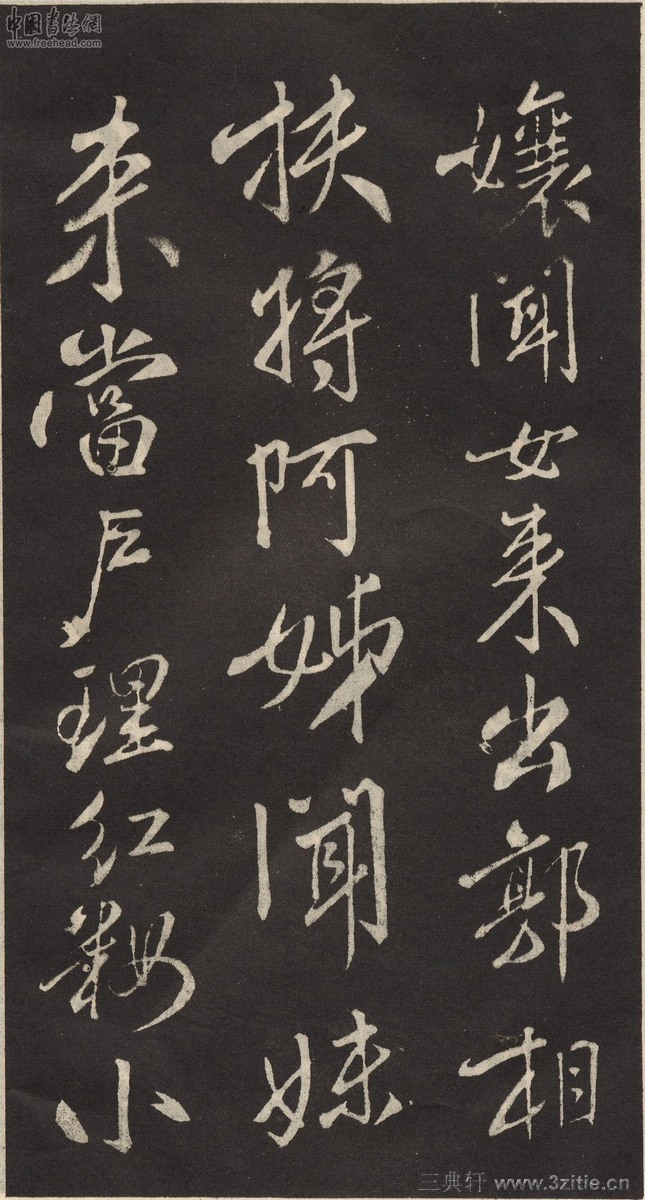 中国书法網
www.freehead.com
孃聞女来出郭相
扶将阿姊聞妹
来當户理红妝小
三典轩 www.3zitie.cn